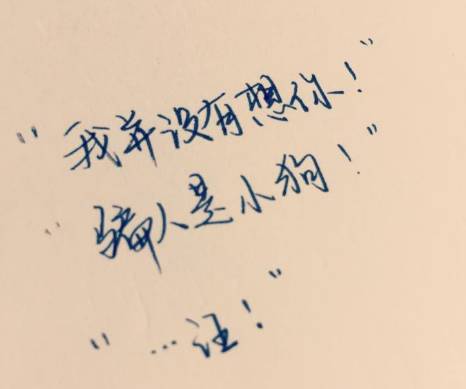 “我并没有想你！”
“骗人是小狗！”
“…汪！”